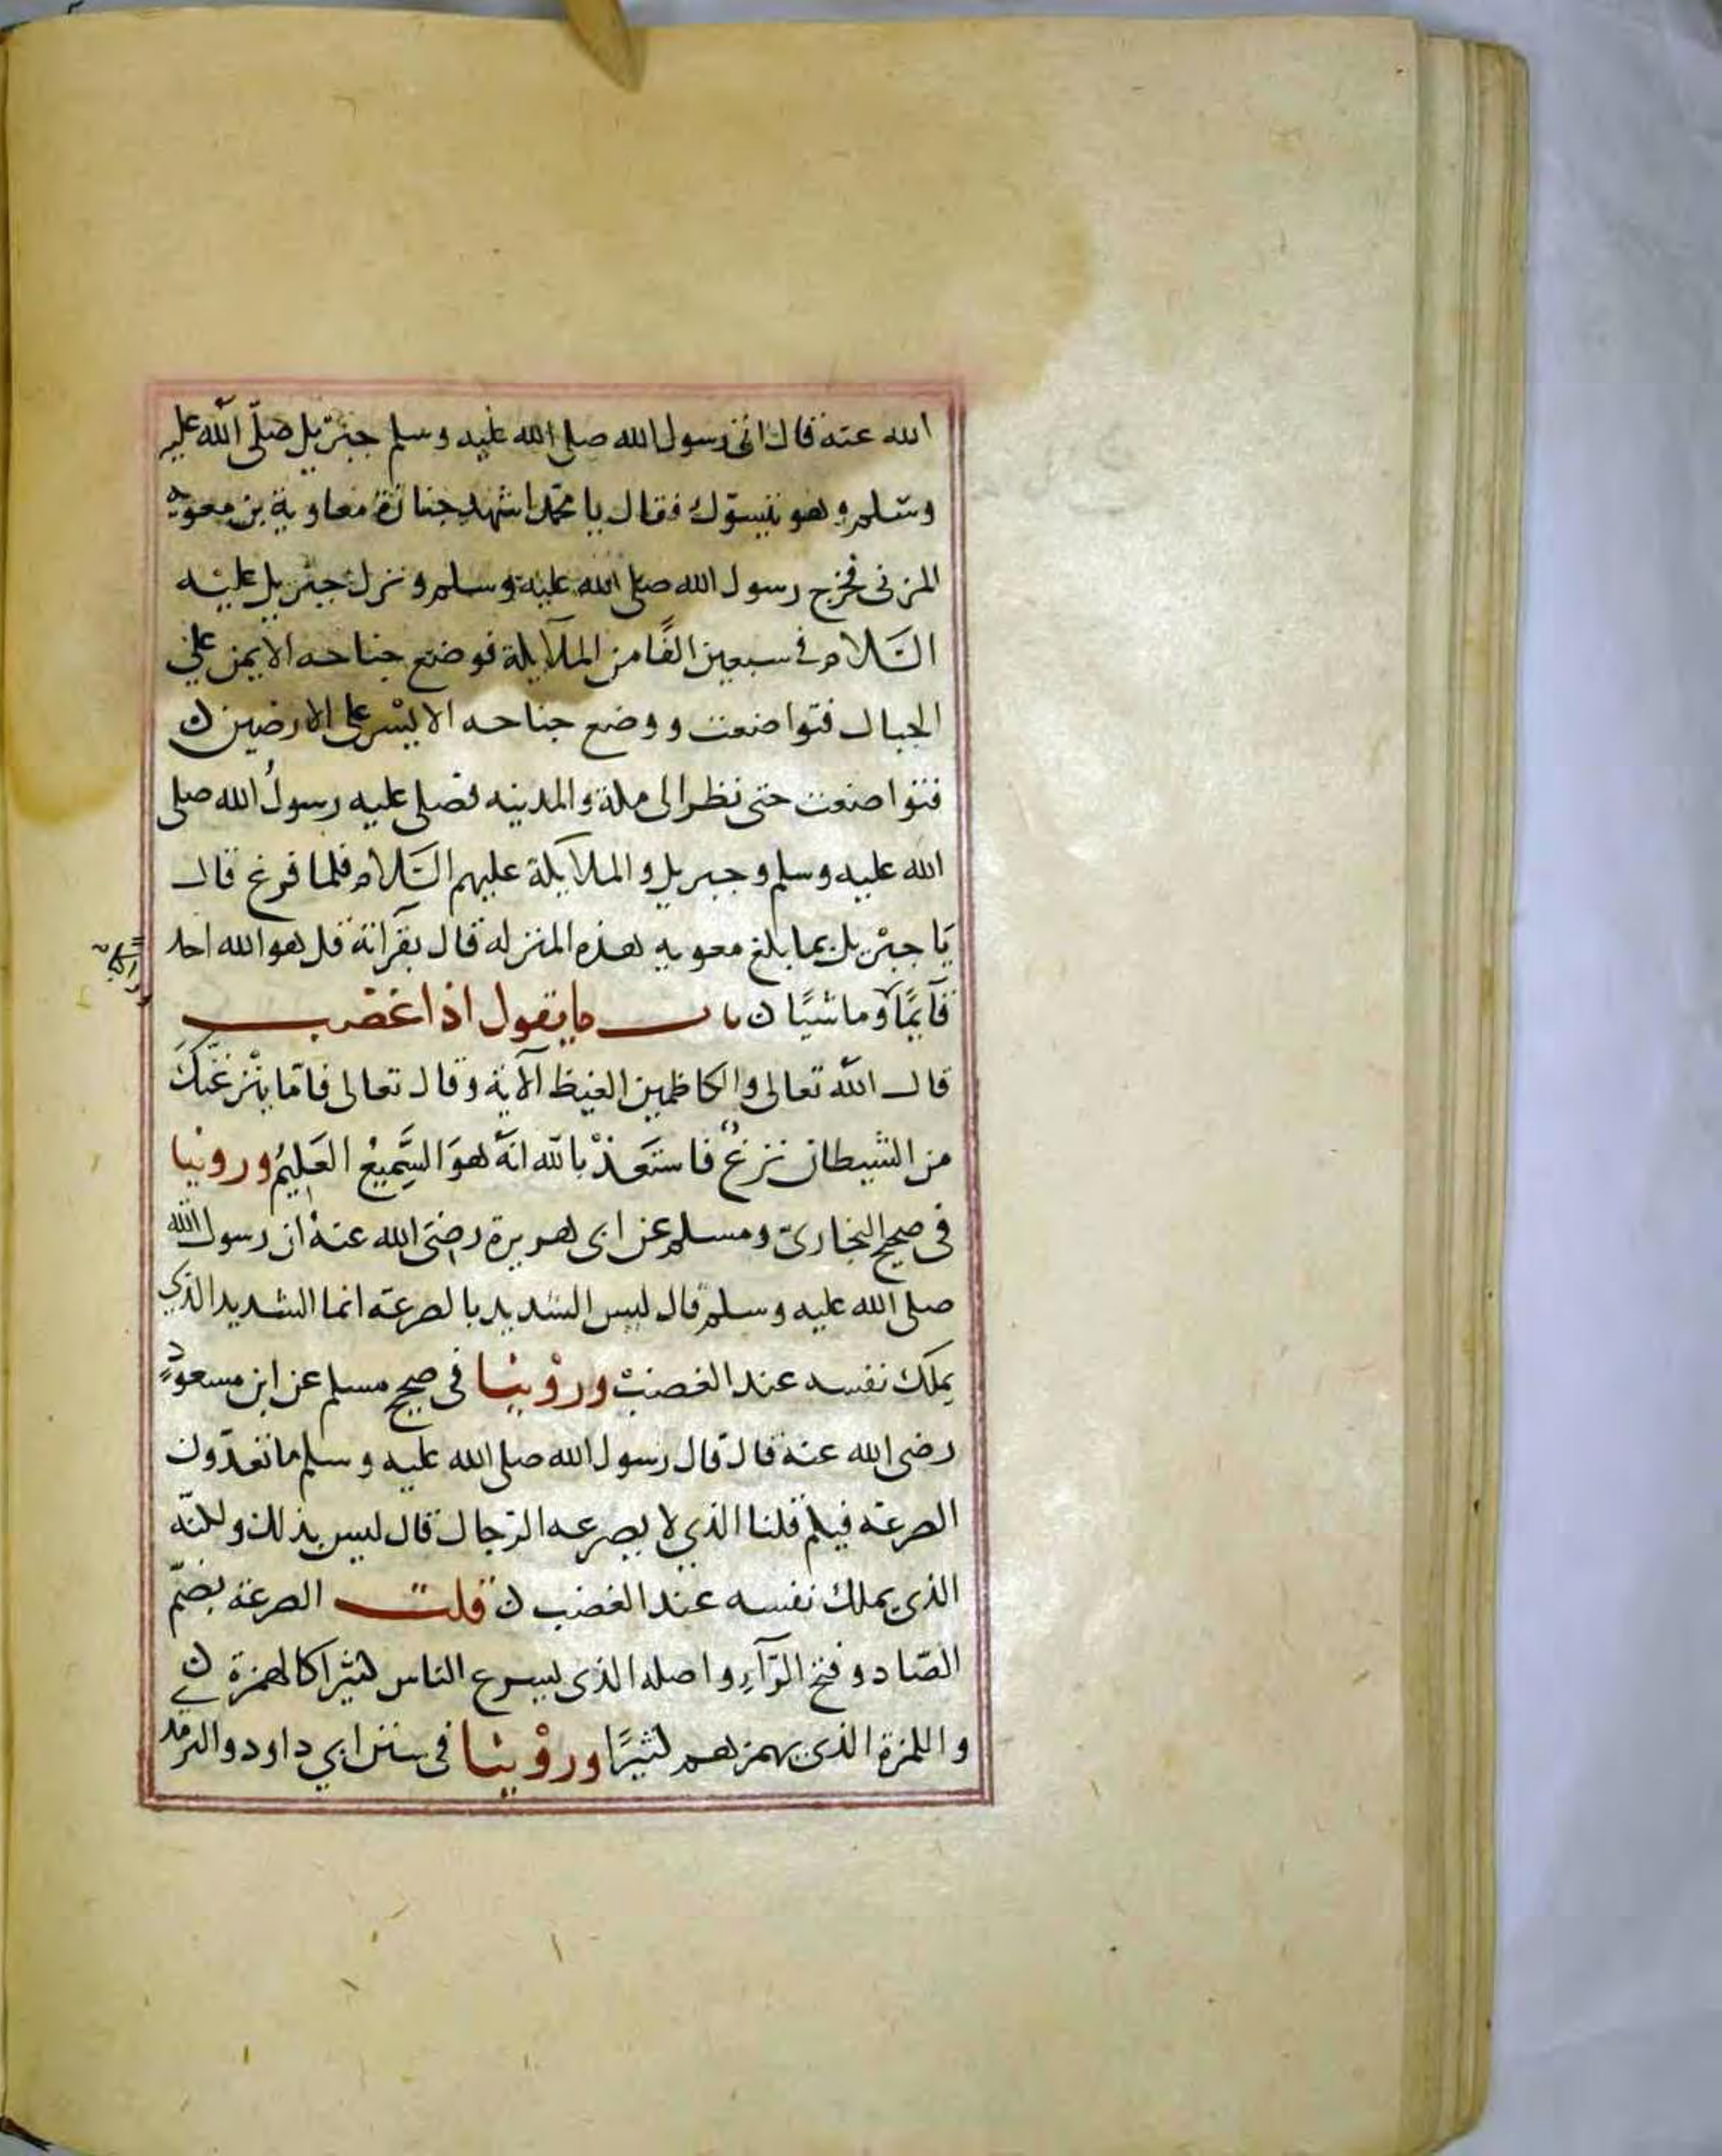 الله عنه قال اتى رسول الله صلى الله عليه وسلم جبريل صلّى الله عليه
وسلم وهو بتبوك فقال يا محمد اشهد جنازة معاوية بن معوية
المزنى فخرج رسول الله صلى الله عليه وسلم ونزل جبريل عليه
السَّلام فى سبعين الفًا من الملايكة فوضع جناحه الايمن على
الجبال فتواضعت ووضع جناحه الايسر على الارضين
فتواضعت حتى نظر الى مكة والمدينه فصلى عليه رسولُ الله صلى
الله عليه وسلم وجبريل والملايكة عليهم السَّلام فلما فرغ قال
يَا جبْريل بما بلغ معويه هذه المنزله قال بقرآته قل هو الله احد
قآيمًا وماشيًا باب ما يقول اذا غضب
قال الله تعالى والكاظمين الغيظ الآية وقال تعالى فامّا ينْزغنّكَ
من الشيطان نزغٌ فاستَعَذْ بالله انّهُ هوَ السَّمِيعُ العَلِيمُ وروينا
فى صحيح البخارىّ ومسلم عن ابى هريرة رضى الله عنهُ ان رسول الله
صلى الله عليه وسلم قال ليس الشديد بالصرعة انما الشديد الذي
يملك نفسه عند الغضبْ وروْينا فى صحيح مسلم عن ابن مسعودٍ
رضى الله عنه قال قال رسول الله صلى الله عليه وسلم ما تعدّون
الصرعة فيكم قلنا الذي لا يصرعه الرّجال قال ليس بذلك ولكنّه
الذى يملك نفسه عند الغضب قلت الصرعة بضمّ
الصّاد وفتح الرّآءِ واصله الذى يسرع الناس كثيرا كالهمزة
واللمزة الذى يهمزهم كثيرًا وروْينا فى سنن ابي داود والترمذ